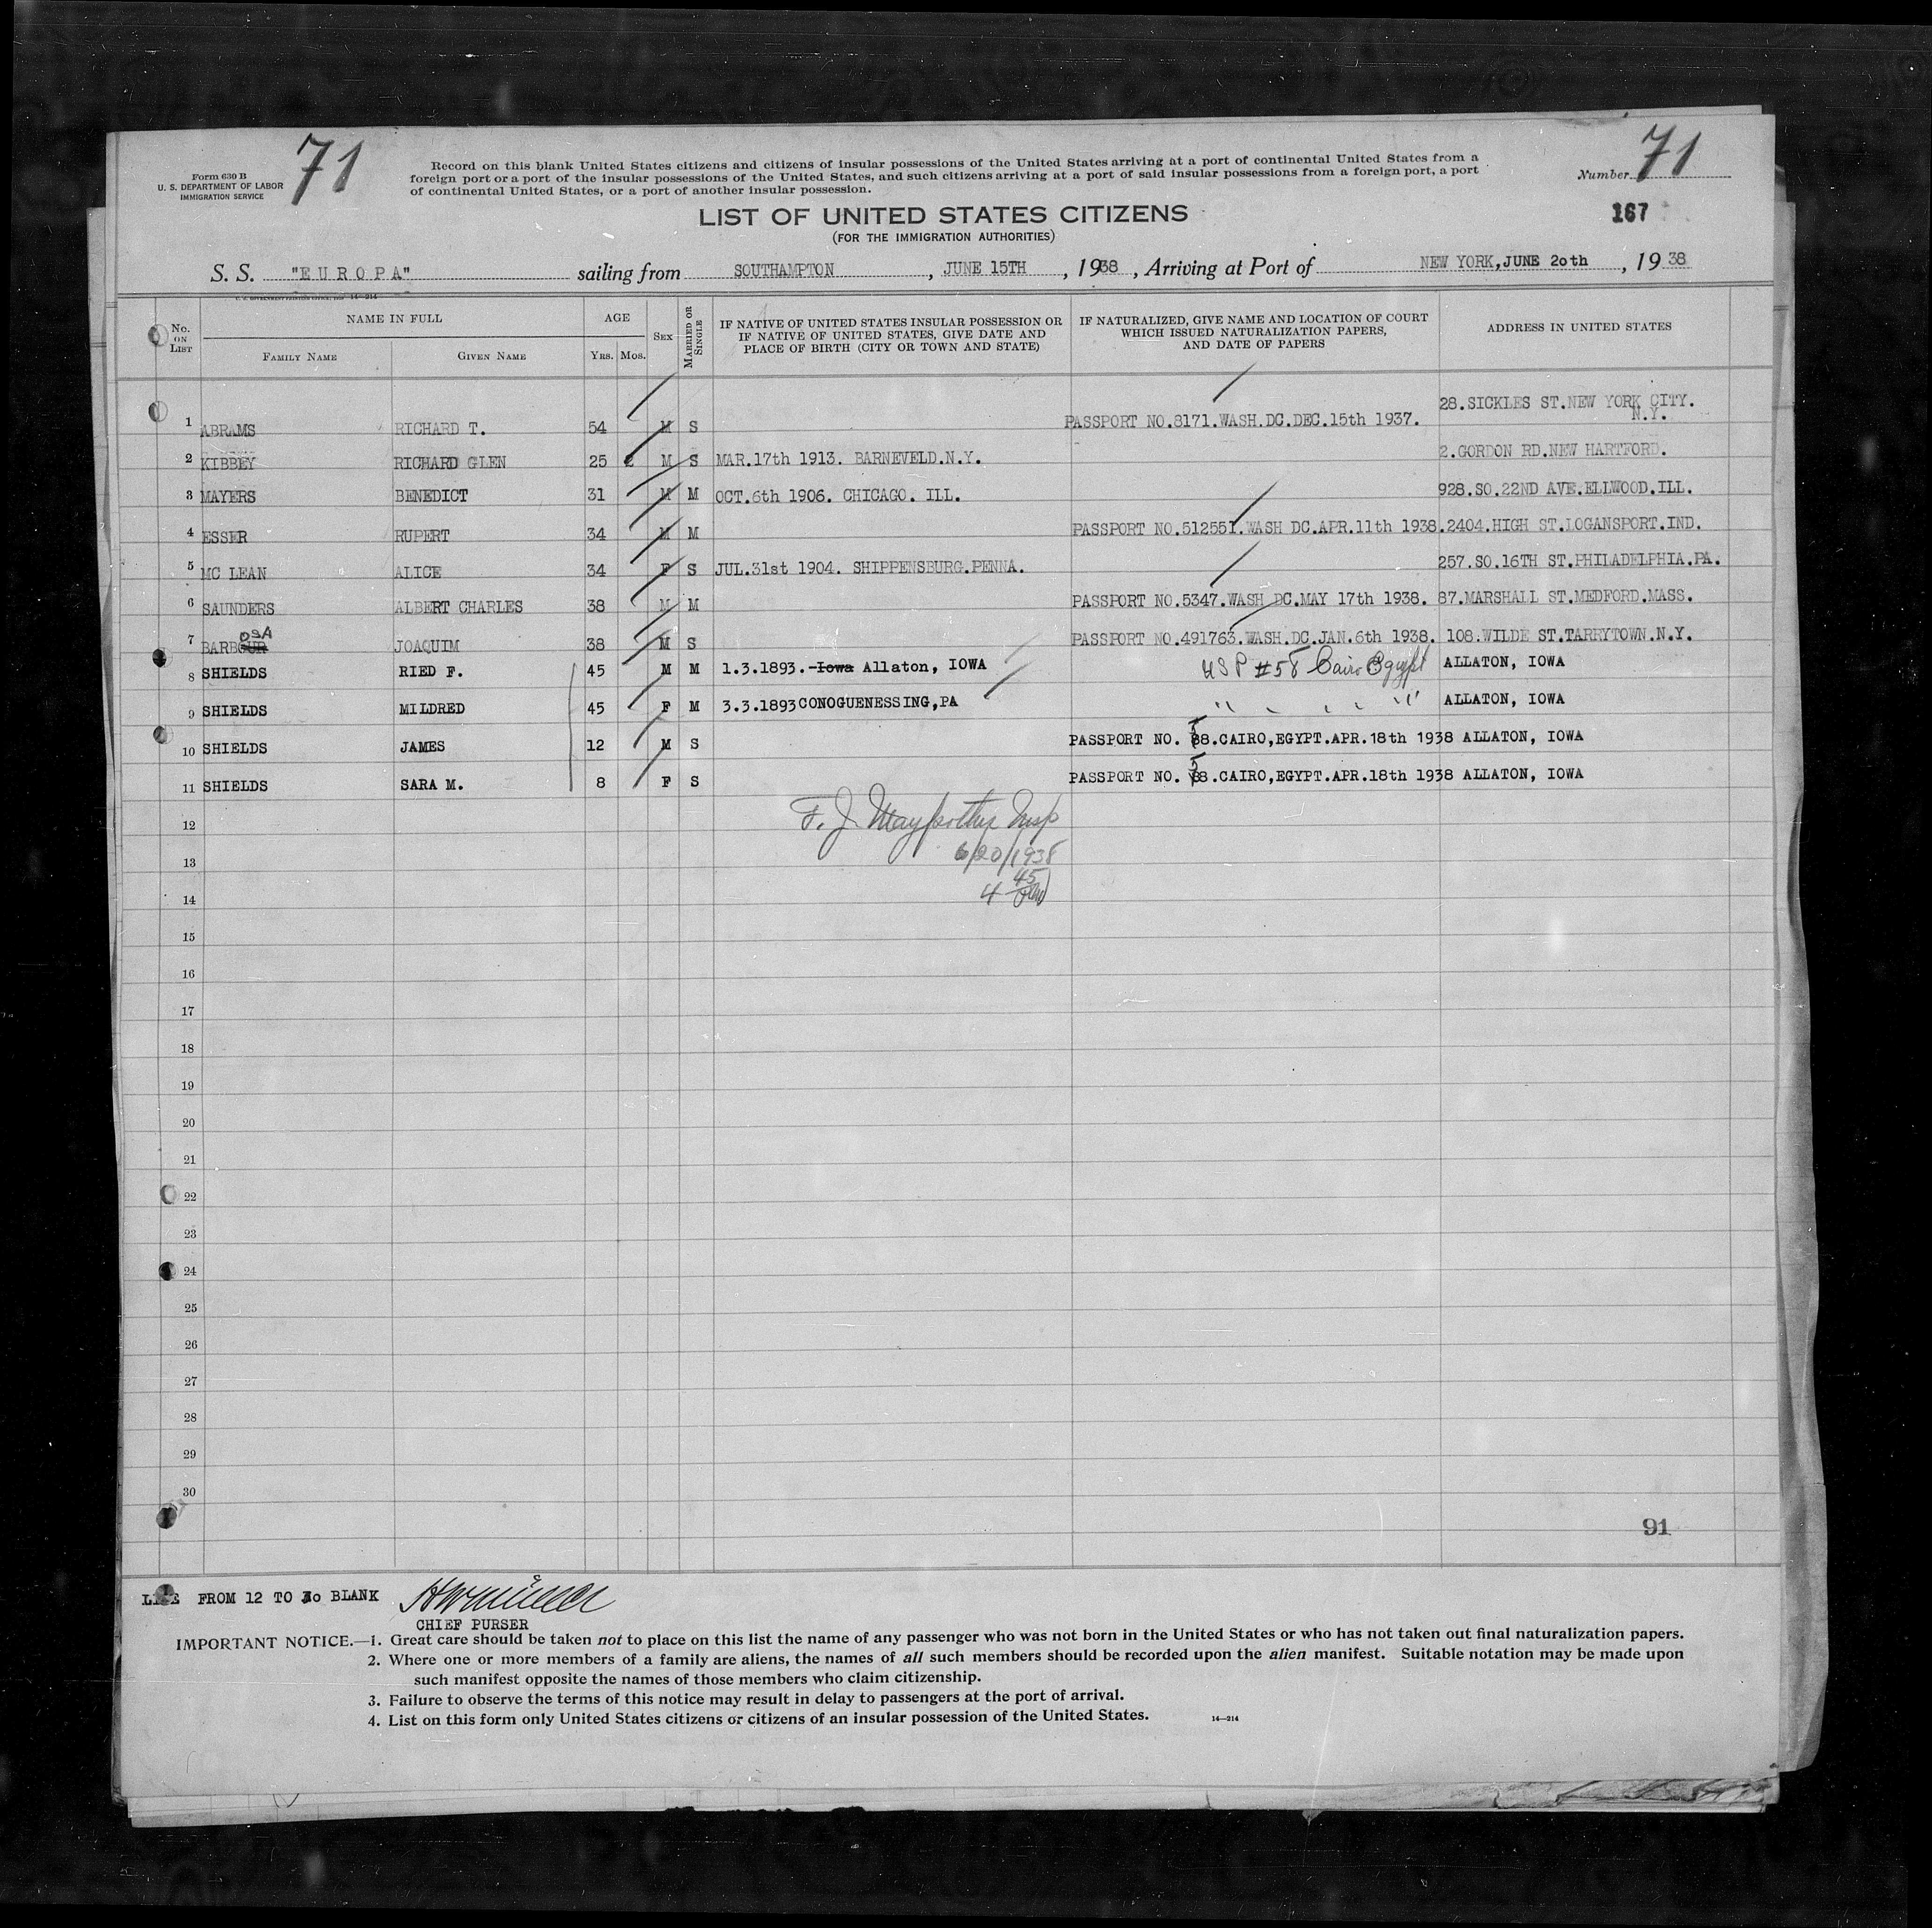 71
71
Form 630 B
U. S. DEPARTMENT OF LABOR
IMMIGRATION SERVICE
Record on this blank United States citizens and citizens of insular possessions of the United States arriving at a port of continental United States from a
foreign port or a port of the insular possessions of the United States, and such citizens arriving at a port of said insular possessions from a foreign port, a port
of continental United States, or a port of another insular possession.
Number
167
LIST OF UNITED STATES CITIZENS
(FOR THE IMMIGRATION AUTHORITIES)
S. S. "EUROPA" sailing from SOUTHAMPTON, JUNE 15TH, 1938, Arriving at Port of NEW YORK, JUNE 20th, 1938
No. ON LIST NAME IN FULL AGE SEX MARRIED OR SINGLE IF NATIVE OF UNITED STATES INSULAR POSSESSION OR IF NATIVE OF UNITED STATES, GIVE DATE AND PLACE OF BIRTH (CITY OR TOWN AND STATE) IF NATURALIZED, GIVE NAME AND LOCATION OF COURT WHICH ISSUED NATURALIZATION PAPERS, AND DATE OF PAPERS ADDRESS IN UNITED STATES
FAMILY NAME GIVEN NAME YRS. MOS.
1 ABRAMS RICHARD T. 54 M S PASSPORT NO.8171.WASH.DC.DEC.15th 1937. 28.SICKLES ST.NEW YORK CITY. N.Y.
2 KIBBEY RICHARD GLEN 25 2 M S MAR.17th 1913. BARNEVELD.N.Y. 2.GORDON RD.NEW HARTFORD.
3 MAYERS BENEDICT 31 M M OCT.6th 1906. CHICAGO. ILL. 928.SO.22ND AVE.ELLWOOD.ILL.
4 ESSER RUPERT 34 M M PASSPORT NO.512551.WASH DC.APR.11th 1938. 2404.HIGH ST.LOGANSPORT.IND.
5 MC LEAN ALICE 34 F S JUL.31st 1904. SHIPPENSBURG.PENNA. 257.SO.16TH ST.PHILADELPHIA.PA.
6 SAUNDERS ALBERT CHARLES 38 M M PASSPORT NO.5347.WASH DC.MAY 17th 1938. 87.MARSHALL ST.MEDFORD.MASS.
7 BARBOUR OSA JOAQUIM 38 M S PASSPORT NO.491763.WASH.DC.JAN.6th 1938. 108.WILDE ST.TARRYTOWN.N.Y.
8 SHIELDS RIED F. 45 M M 1.3.1893. Iowa Allaton, IOWA USP #58 Cairo Egypt ALLATON, IOWA
9 SHIELDS MILDRED 45 F M 3.3.1893 CONOGUENESSING,PA " " " " ALLATON, IOWA
10 SHIELDS JAMES 12 M S PASSPORT NO. 58.CAIRO,EGYPT.APR.18th 1938 ALLATON, IOWA
11 SHIELDS SARA M. 8 F S PASSPORT NO. 58.CAIRO,EGYPT.APR.18th 1938 ALLATON, IOWA
12
F. J. Insp
13
6/20/1938
14
4 45 PM
15
16
17
18
19
20
21
22
23
24
25
26
27
28
29
30
91
FROM 12 TO 30 BLANK
CHIEF PURSER
IMPORTANT NOTICE.—1. Great care should be taken not to place on this list the name of any passenger who was not born in the United States or who has not taken out final naturalization papers.
2. Where one or more members of a family are aliens, the names of all such members should be recorded upon the alien manifest. Suitable notation may be made upon
such manifest opposite the names of those members who claim citizenship.
3. Failure to observe the terms of this notice may result in delay to passengers at the port of arrival.
4. List on this form only United States citizens or citizens of an insular possession of the United States.
14—214